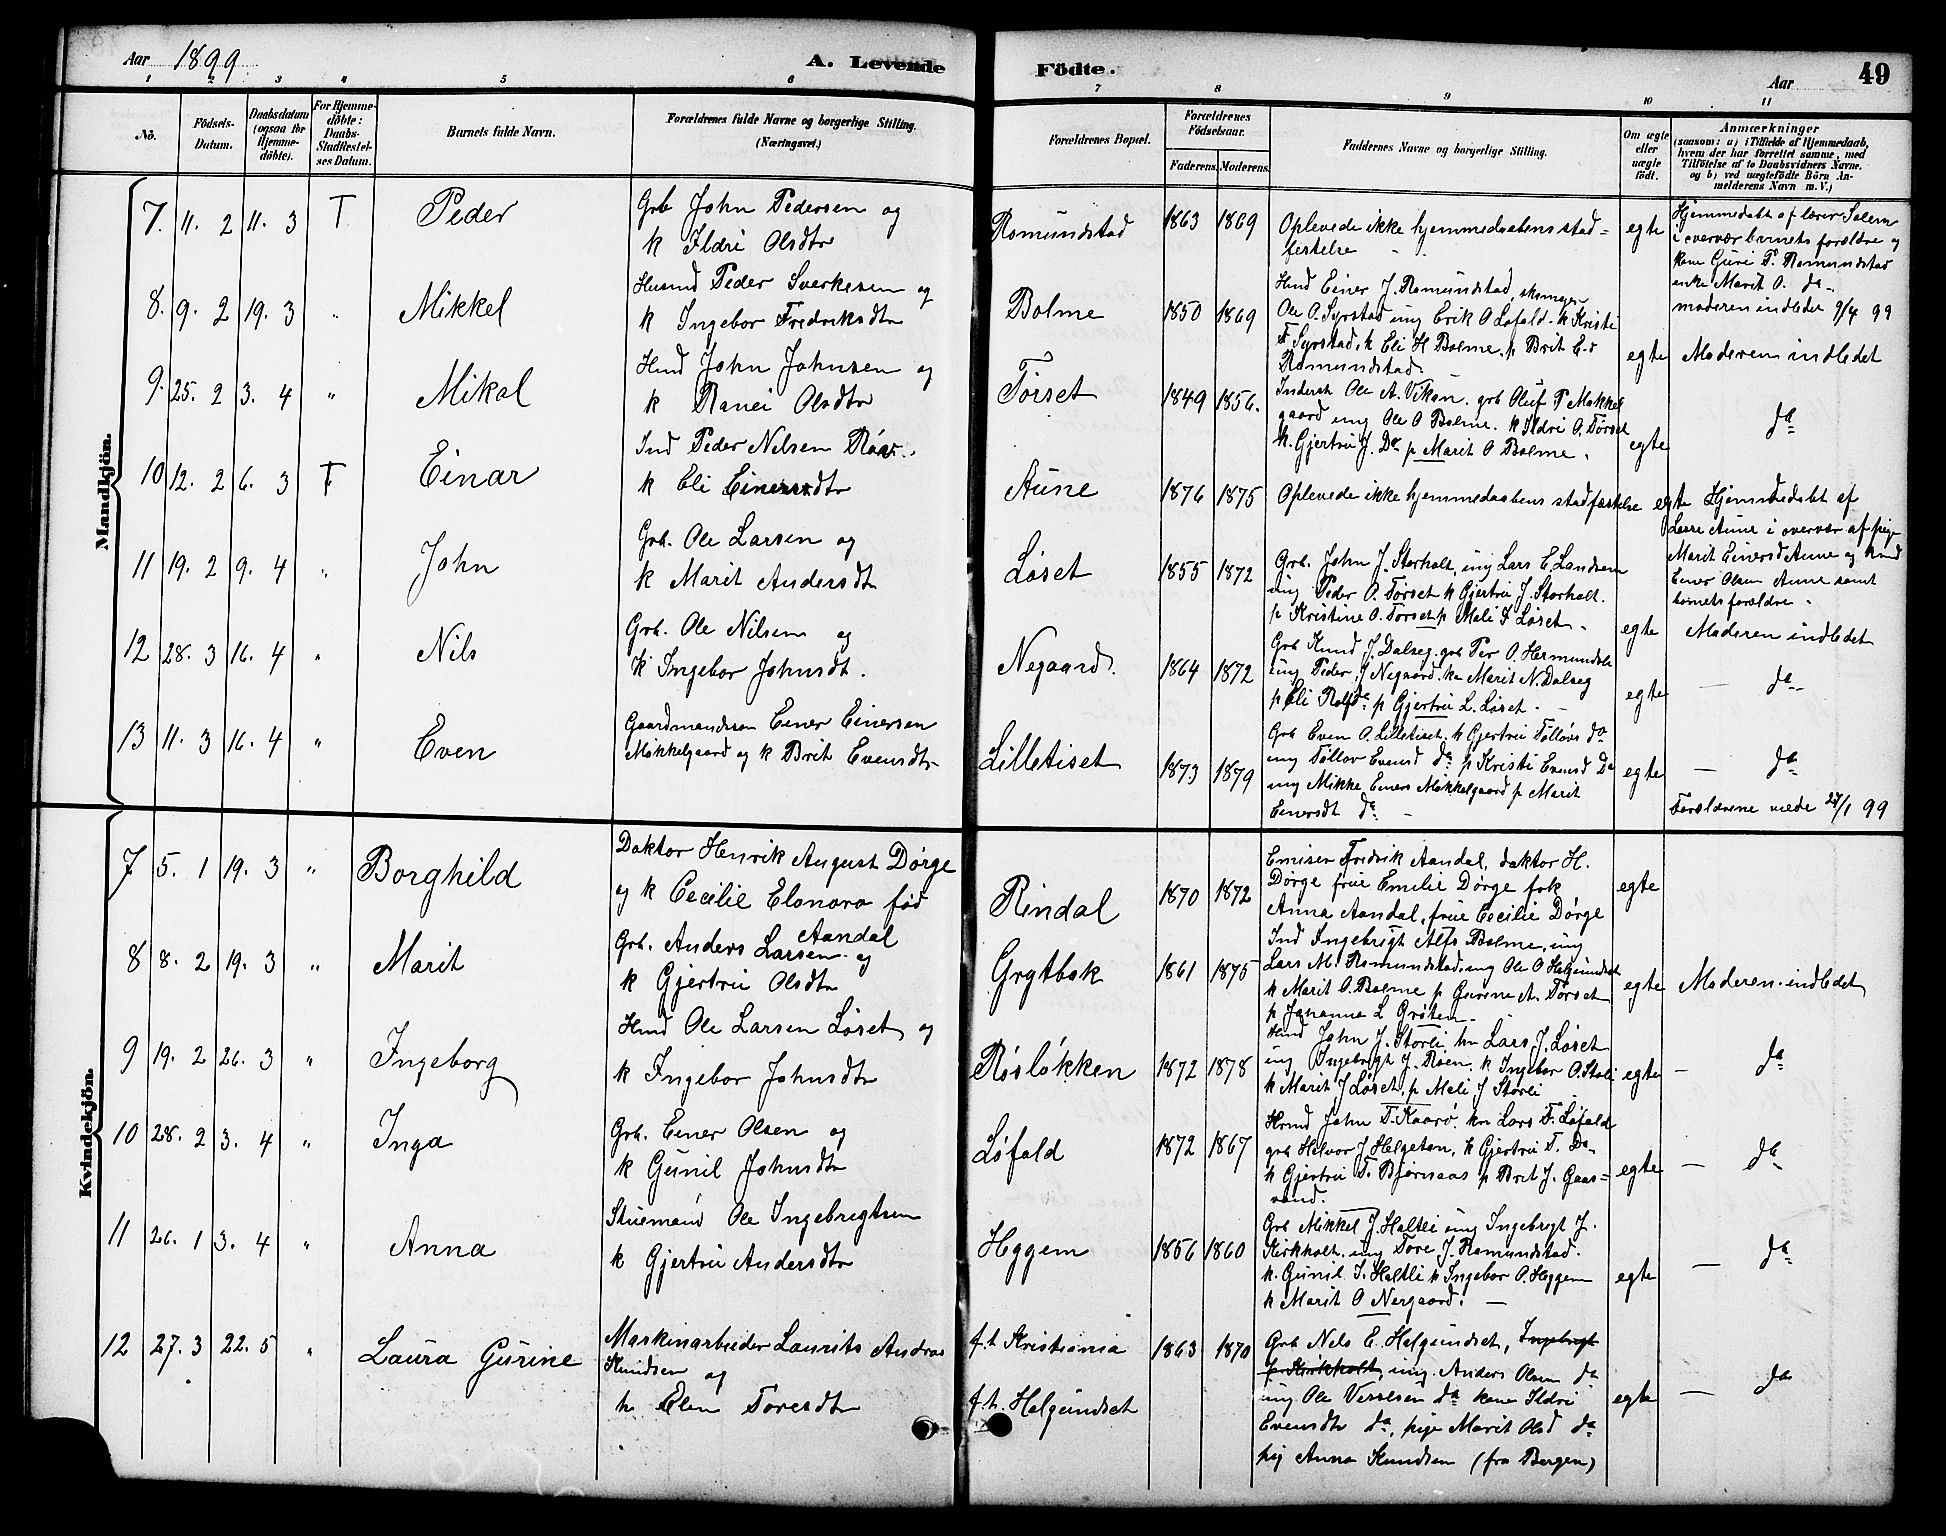 Aar 1899. A. Levende Födte. Aar 49
1 2 3 4 5 6 7 8 9 10 11
No. Födsels-Datum. Daabsdatum (ogsaa for Hjemme-döbte). For Hjemme-döbte: Daabs-Stadfestel-ses Datum. Barnets fulde Navn. Forældrenes fulde Navne og borgerlige Stilling. (Næringsvei.) Forældrenes Bopæl. Forældrenes Födselsaar. Faderens. Moderens. Faddernes Navne og borgerlige Stilling. Om ægte eller uægte födt. Anmærkninger (saasom: a) i Tilfælde af Hjemmedaab, hvem der har forrettet samme, med Tilföielse af to Daabsvidners Navne. og b) ved uægtefödte Börn An-melderens Navn m. V.)
Mandkjön.
7. 11. 2 11. 3 T Peder
Grb John Pedersen og
k Ildri Olsdtr
Romundstad 1863 1869
Oplevede ikke hjemmedaabens stad=
festelse -
egte
Hjemmedøbt af lærer Solem
i overvær barnets forældre og
kone Guri P. Romundstad
enke Marit O. do
moderen indledet 9/4 99
8. 9. 2 19. 3 " Mikkel
Husmd Peder Sverkesen og
k Ingebor Fredriksdtr
Bolme 1850 1869
Hmd Einer J. Romundstad, skomager
Ole O. Syrstad ung Erik O Løfald. k Kristi
F Syrstad, k Eli H Bolme, p Brit E.d
Romundstad.
egte Moderen indledet
9. 25. 2 3. 4 " Mikal
Hmd John Johnsen og
k Ranei Olsdtr
Tørset 1849 1856.
Inderst Ole A. Vikan. grb Oluf P Møkkel
gaard ung Ole O Bolme. k Ildri O. Tørset
k. Gjertru J. Do p Marit O Bolme.
egte da
10 12. 2 6. 3 T Einar
Ind Peder Nilsen Røv..
k Eli Einersdtr
Aune 1876 1875
Oplevede ikke hjemmedaabens stadfæstelse egte
Hjemmedøbt af
Lasse Aune i overvær af pige
Marit Einersd Aune og Hmd
Einer Olsen Aune samt
barnets forældre.
11 19. 2 9. 4 " John
Grb. Ole Larsen og
k Marit Andersdtr
Løset 1855 1872
Grb. John J. Storholt, ung Lars E. Landsem
ung Peder O. Tørset k Gjertru J. Storholt.
p Kristine O. Tørset p Mali L Løset.
egte Moderen indledet
12 28. 3 16. 4 " Nils
Grb. Ole Nilsen og
k Ingebor Johnsdt.
Negaard. 1864 1872
Grb Knud J. Dalseg. grb Per O. Hermundsli
ung Peder J Negaard. kn Marit N. Dalseg
p Eli Rolfda p Gjertru L. Løset. -
egte — da
13 11. 3 16. 4 " Even
Gaardmandssøn Einer Einersen
Møkkelgaard og k Brit Evensdtr
Lilletiset 1873 1879
Grb Even O. Lilletiset. k Gjertru Følløvs do
ung Tølløv Evensd da p Kristi Evensd Da
ung Mikke Einers Møkkelgaard p Marit
Einersdt da -
egte — da
Forældrene viede 27/1 99
Kvindekjön.
7 5. 1 19. 3 " Borghild
Doktor Henrik August Dørge
og k Cecilie Elonora fød
Aandal
Rindal 1870 1872
Emisær Fredrik Aandal, doktor H.
Dørge frue Emilie Dørge frk
Anna Aandal, frue Cecilie Dørge
egte
8 8. 2 19. 3 " Marit
Grb. Anders Larsen og
k Gjertru Olsdtr
Grytbak 1861 1875
Ind Ingebrigt Alfs Bolme, ung
Lars M. Romundstad, ung Ole O Helgundset
k Marit O. Bolme p Gurine A. Tørset
p Johanna L Grøten.
egte Moderen indledet
9 19. 2 26. 3 " Ingeborg
Hmd Ole Larsen Løset og
k Ingebor Johnsdtr
Røsløkken 1872 1878
Hmd John J. Storli kn Lars J. Løset
ung Ingebrigt J. Røen k Ingebor O. Stoli
k Marit J Løset, p Mali J Storli
egte — da
10 28. 2 3. 4 " Inga
Grb. Einer Olsen og
k Gunil Johnsdtr
Løfald 1872 1867
Hmd John T. Kaarø. kn Lars F. Løfald
grb Halvor J Helgeton, k Gjertru T. Do
k Gjertru T. Bjørnaas p Brit J. Gaas=
vand.
egte — da
11 26. 1 3. 4 " Anna
Stuemand Ole Ingebrigtsen
k Gjertru Andersdtr
Heggem 1856 1860
Grb Mikkel J. Haltli ung Ingebrigt J.
Kirkholt, ung Tore J. Romundstad.
k. Gunil I. Haltli k Ingebor O. Heggem
k Marit O Nergaard. —
egte — da
12 27. 3 22. 5 " Laura Gurine
Maskinarbeider Laurits Andreas
Knudsen og
h. Elen Toresdtr
f.t. Kristiania
f.t. Helgundset
1863 1870
Grb Nils E. Helgundset, Ingebrigt
p Kirkholt, ung. Anders Olsen da
ung Ole Vesselsen da kone Ildri
Evensdtr da, pige Marit Olsd da
pig Anna Knudsen (fra Bergen)
egte — da